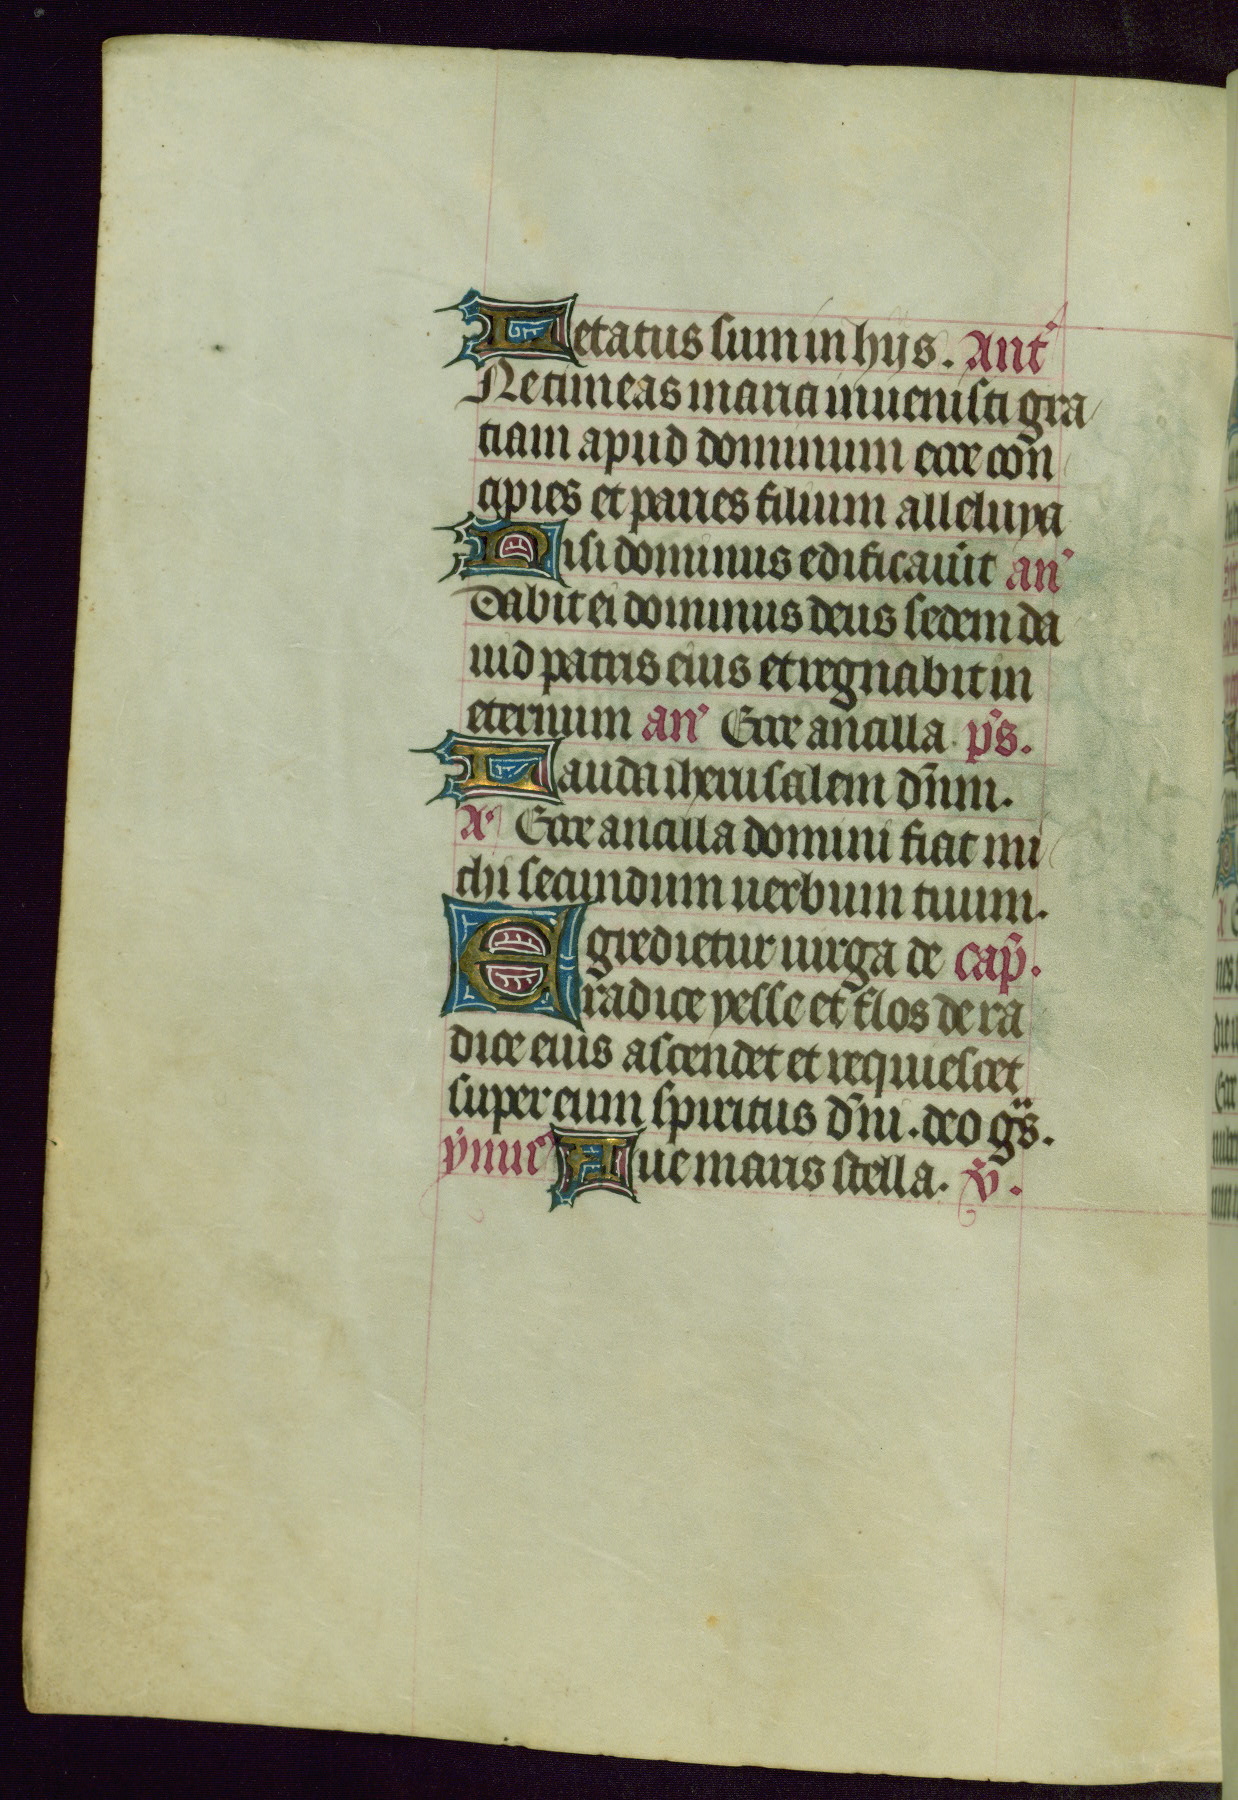 Letatus sum in hijs. Ant̾
Ne timeas maria inuenisti gra
tiam apud dominum ecce con
cipies et paries filium alleluya
Nisi dominus edificauit an̾
Dabit ei dominus deus sedem da
uid patris eius et regnabit in
eternum an̾ Ecce ancilla ps̄.
Lauda iherusalem dn̄m.
A. Ecce ancilla domini fiat mi
chi secundum uerbum tuum.
Egredietur uirga de cap̄.
radice yesse et flos de ra
dice eius ascendet et requiescet
super eum spiritus dn̄i. deo gr̄s.
ẏmnꝰ Aue maris stella. v̄.